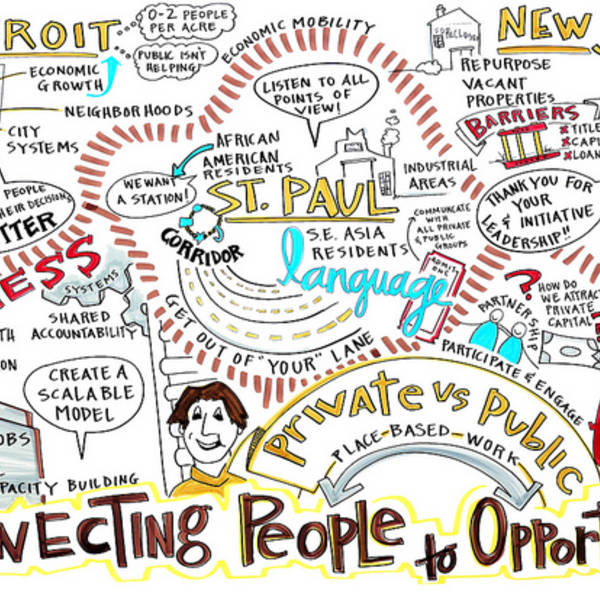 ROIT
0-2 PEOPLE
PER ACRE
PUBLIC ISN'T
HELPING!
ECONOMIC
GROWTH
NEIGHBORHOODS
CITY
SYSTEMS
PEOPLE
THEIR DECISIONS
TTER
ECONOMIC MOBILITY
LISTEN TO ALL
POINTS OF
VIEW!
AFRICAN
AMERICAN
RESIDENTS
WE WANT
A STATION!
ST. PAUL
CORRIDOR
S.E. ASIA
RESIDENTS
language
INDUSTRIAL
AREAS
COMMUNICATE
WITH
ALL PRIVATE
& PUBLIC
GROUPS
ADMIT
ONE
GET OUT OF "YOUR" LANE
NEW
FORECLOSED
REPURPOSE
VACANT
PROPERTIES
BARRIERS
X TITLE
X CAPI
X LOAN
THANK YOU FOR
YOUR
& INITIATIVE
LEADERSHIP!!
?
HOW DO
WE ATTRAC
PRIVATE
CAPITAL
PARTNERSHIP
PARTICIPATE & ENGAGE
ESS
SYSTEMS
SHARED
TH ACCOUNTABILITY
ON
CREATE A
SCALABLE
MODEL
OBS
PACITY BUILDING
PRIVATE VS PUBLIC
PLACE-BASED-WORK
NNECTING PEOPLE to OPPORT